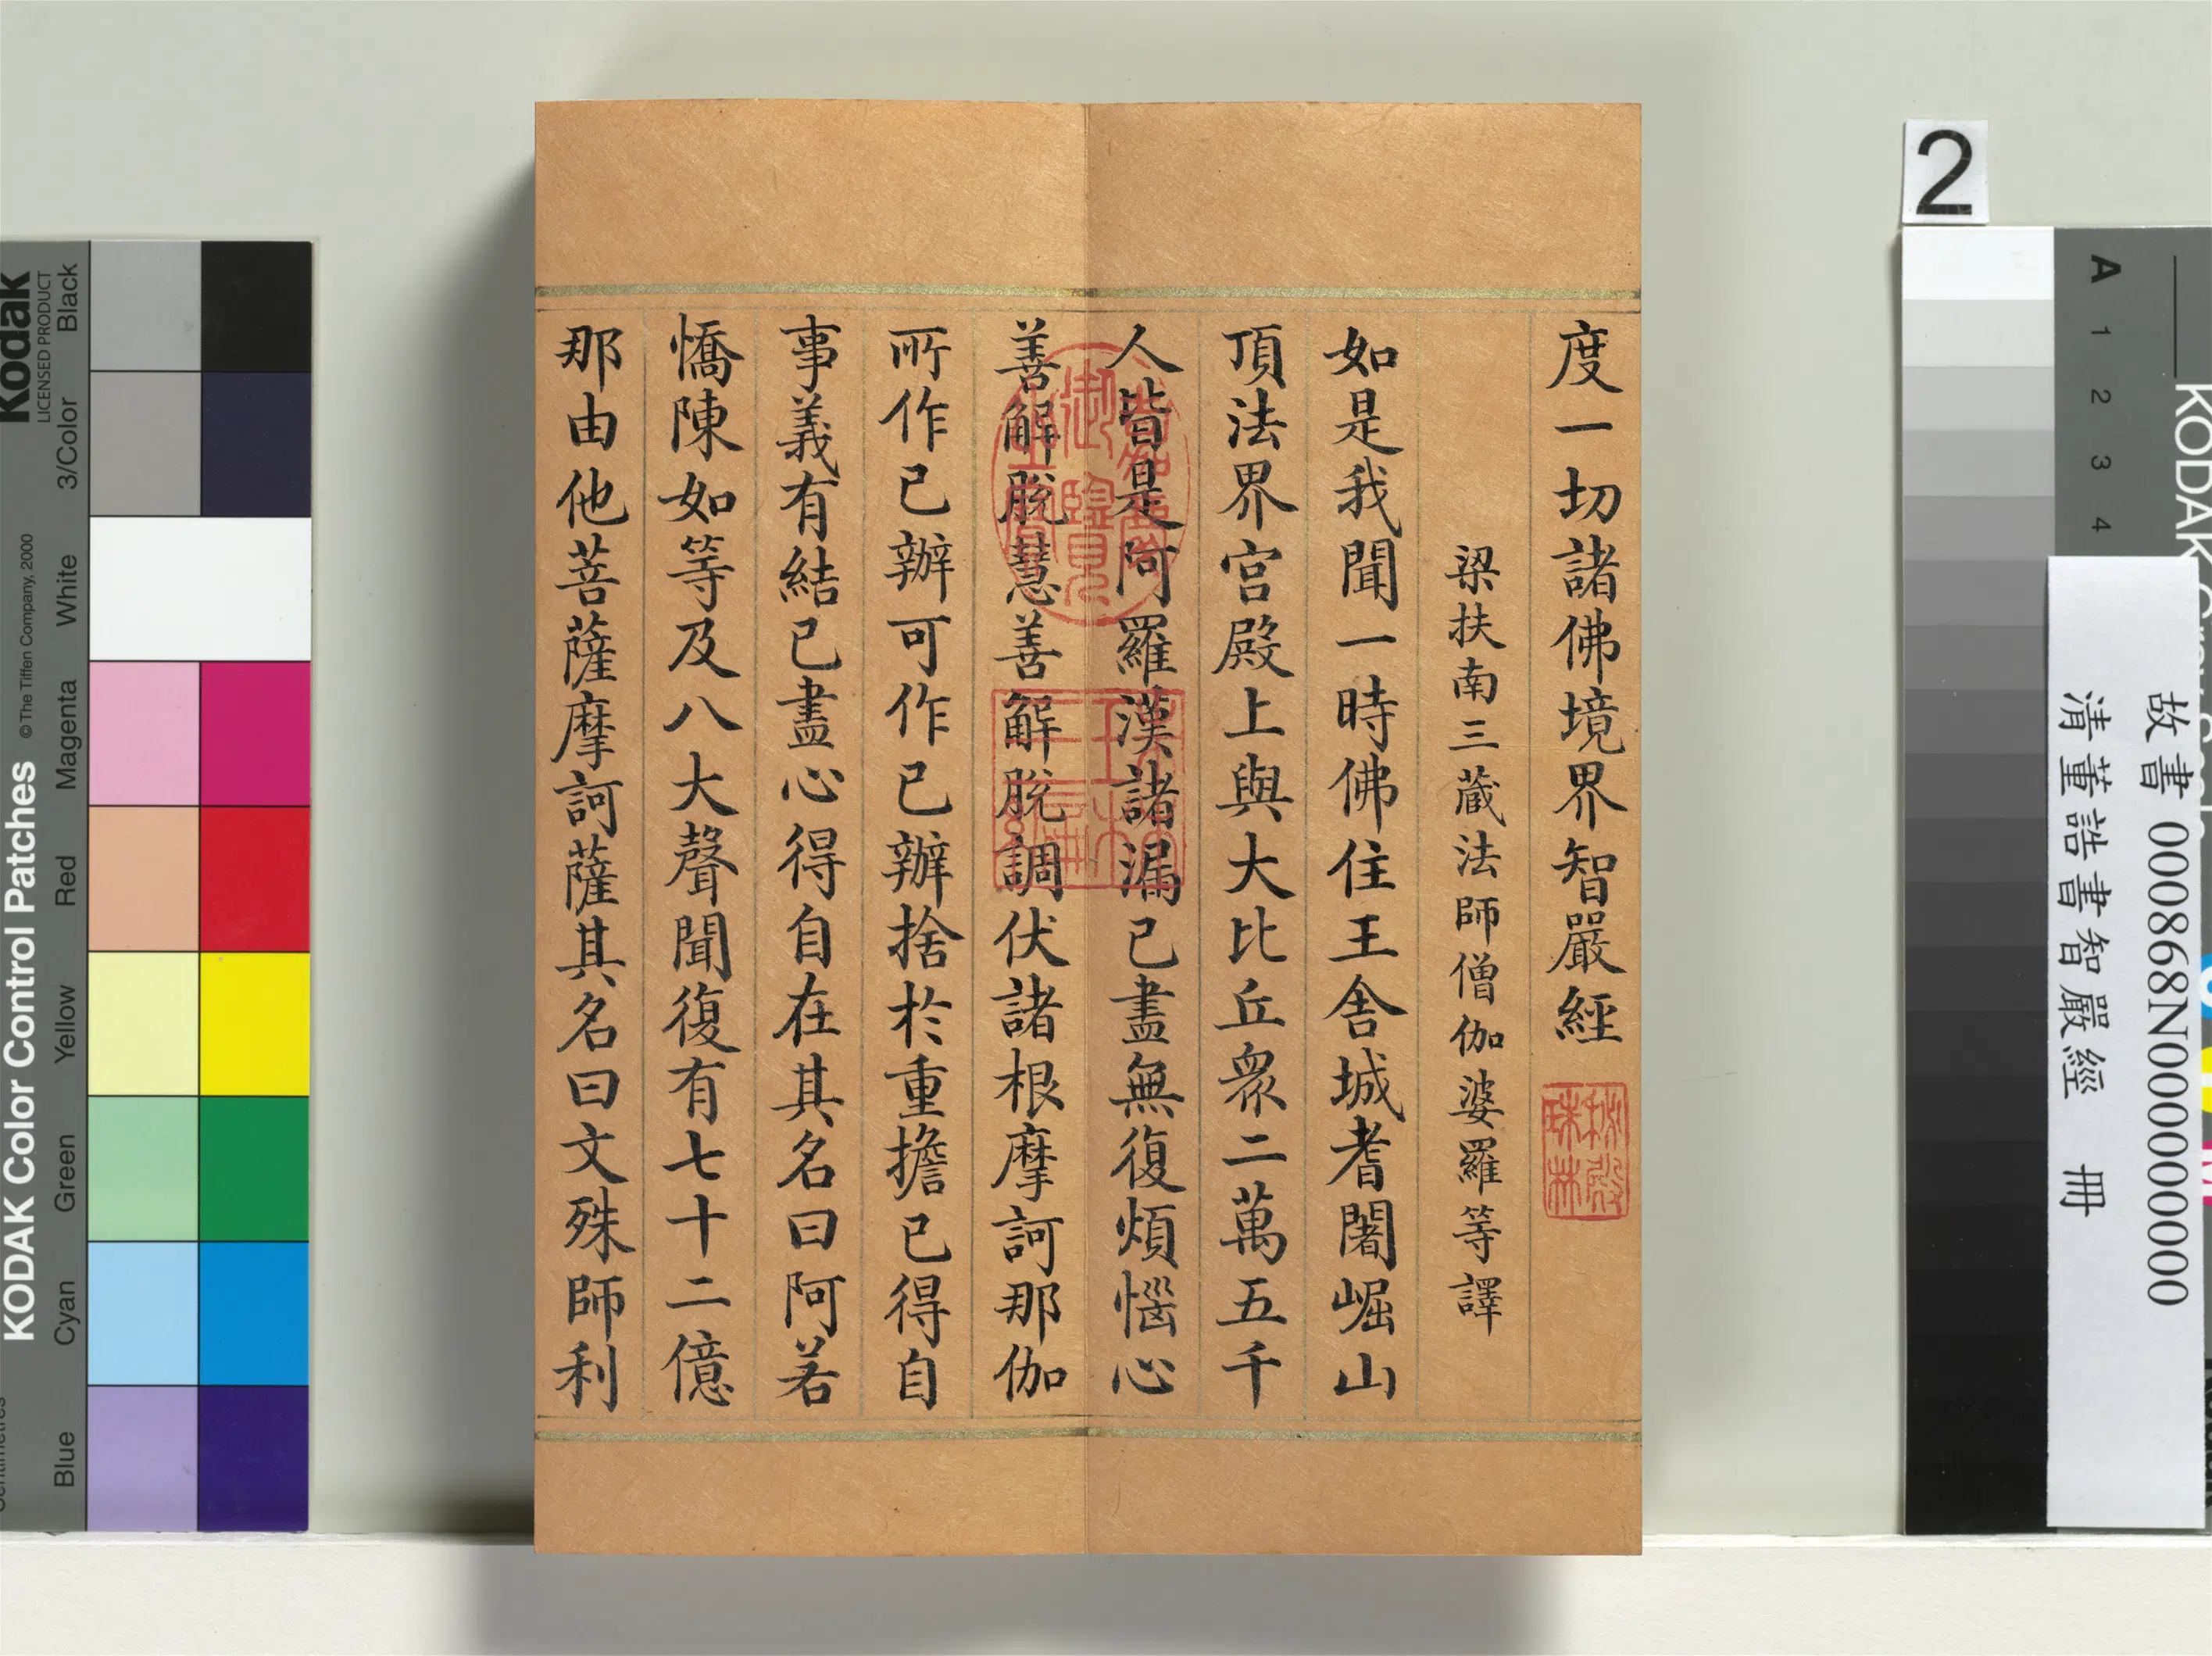 度一切諸佛境界智嚴經
梁扶南三藏法師僧伽婆羅等譯
如是我聞一時佛住王舍城耆闍崛山
頂法界宮殿上與大比丘衆二萬五千
人皆是阿羅漢諸漏已盡無復煩惱心
善解脫慧善解脫調伏諸根摩訶那伽
所作已辦可作已辦捨於重擔已得自
事義有結已盡心得自在其名曰阿若
憍陳如等及八大聲聞復有七十二億
那由他菩薩摩訶薩其名曰文殊師利
嘉慶御覽之寶
秘殿珠林
Kodak
LICENSED PRODUCT
KODAK Color Control Patches
© The Tiffen Company, 2000
Black
3/Color
White
Magenta
Red
Yellow
Green
Cyan
Blue
2
A 1 2 3 4
KODAK
故書 000868N000000000
清董誥書智嚴經 冊